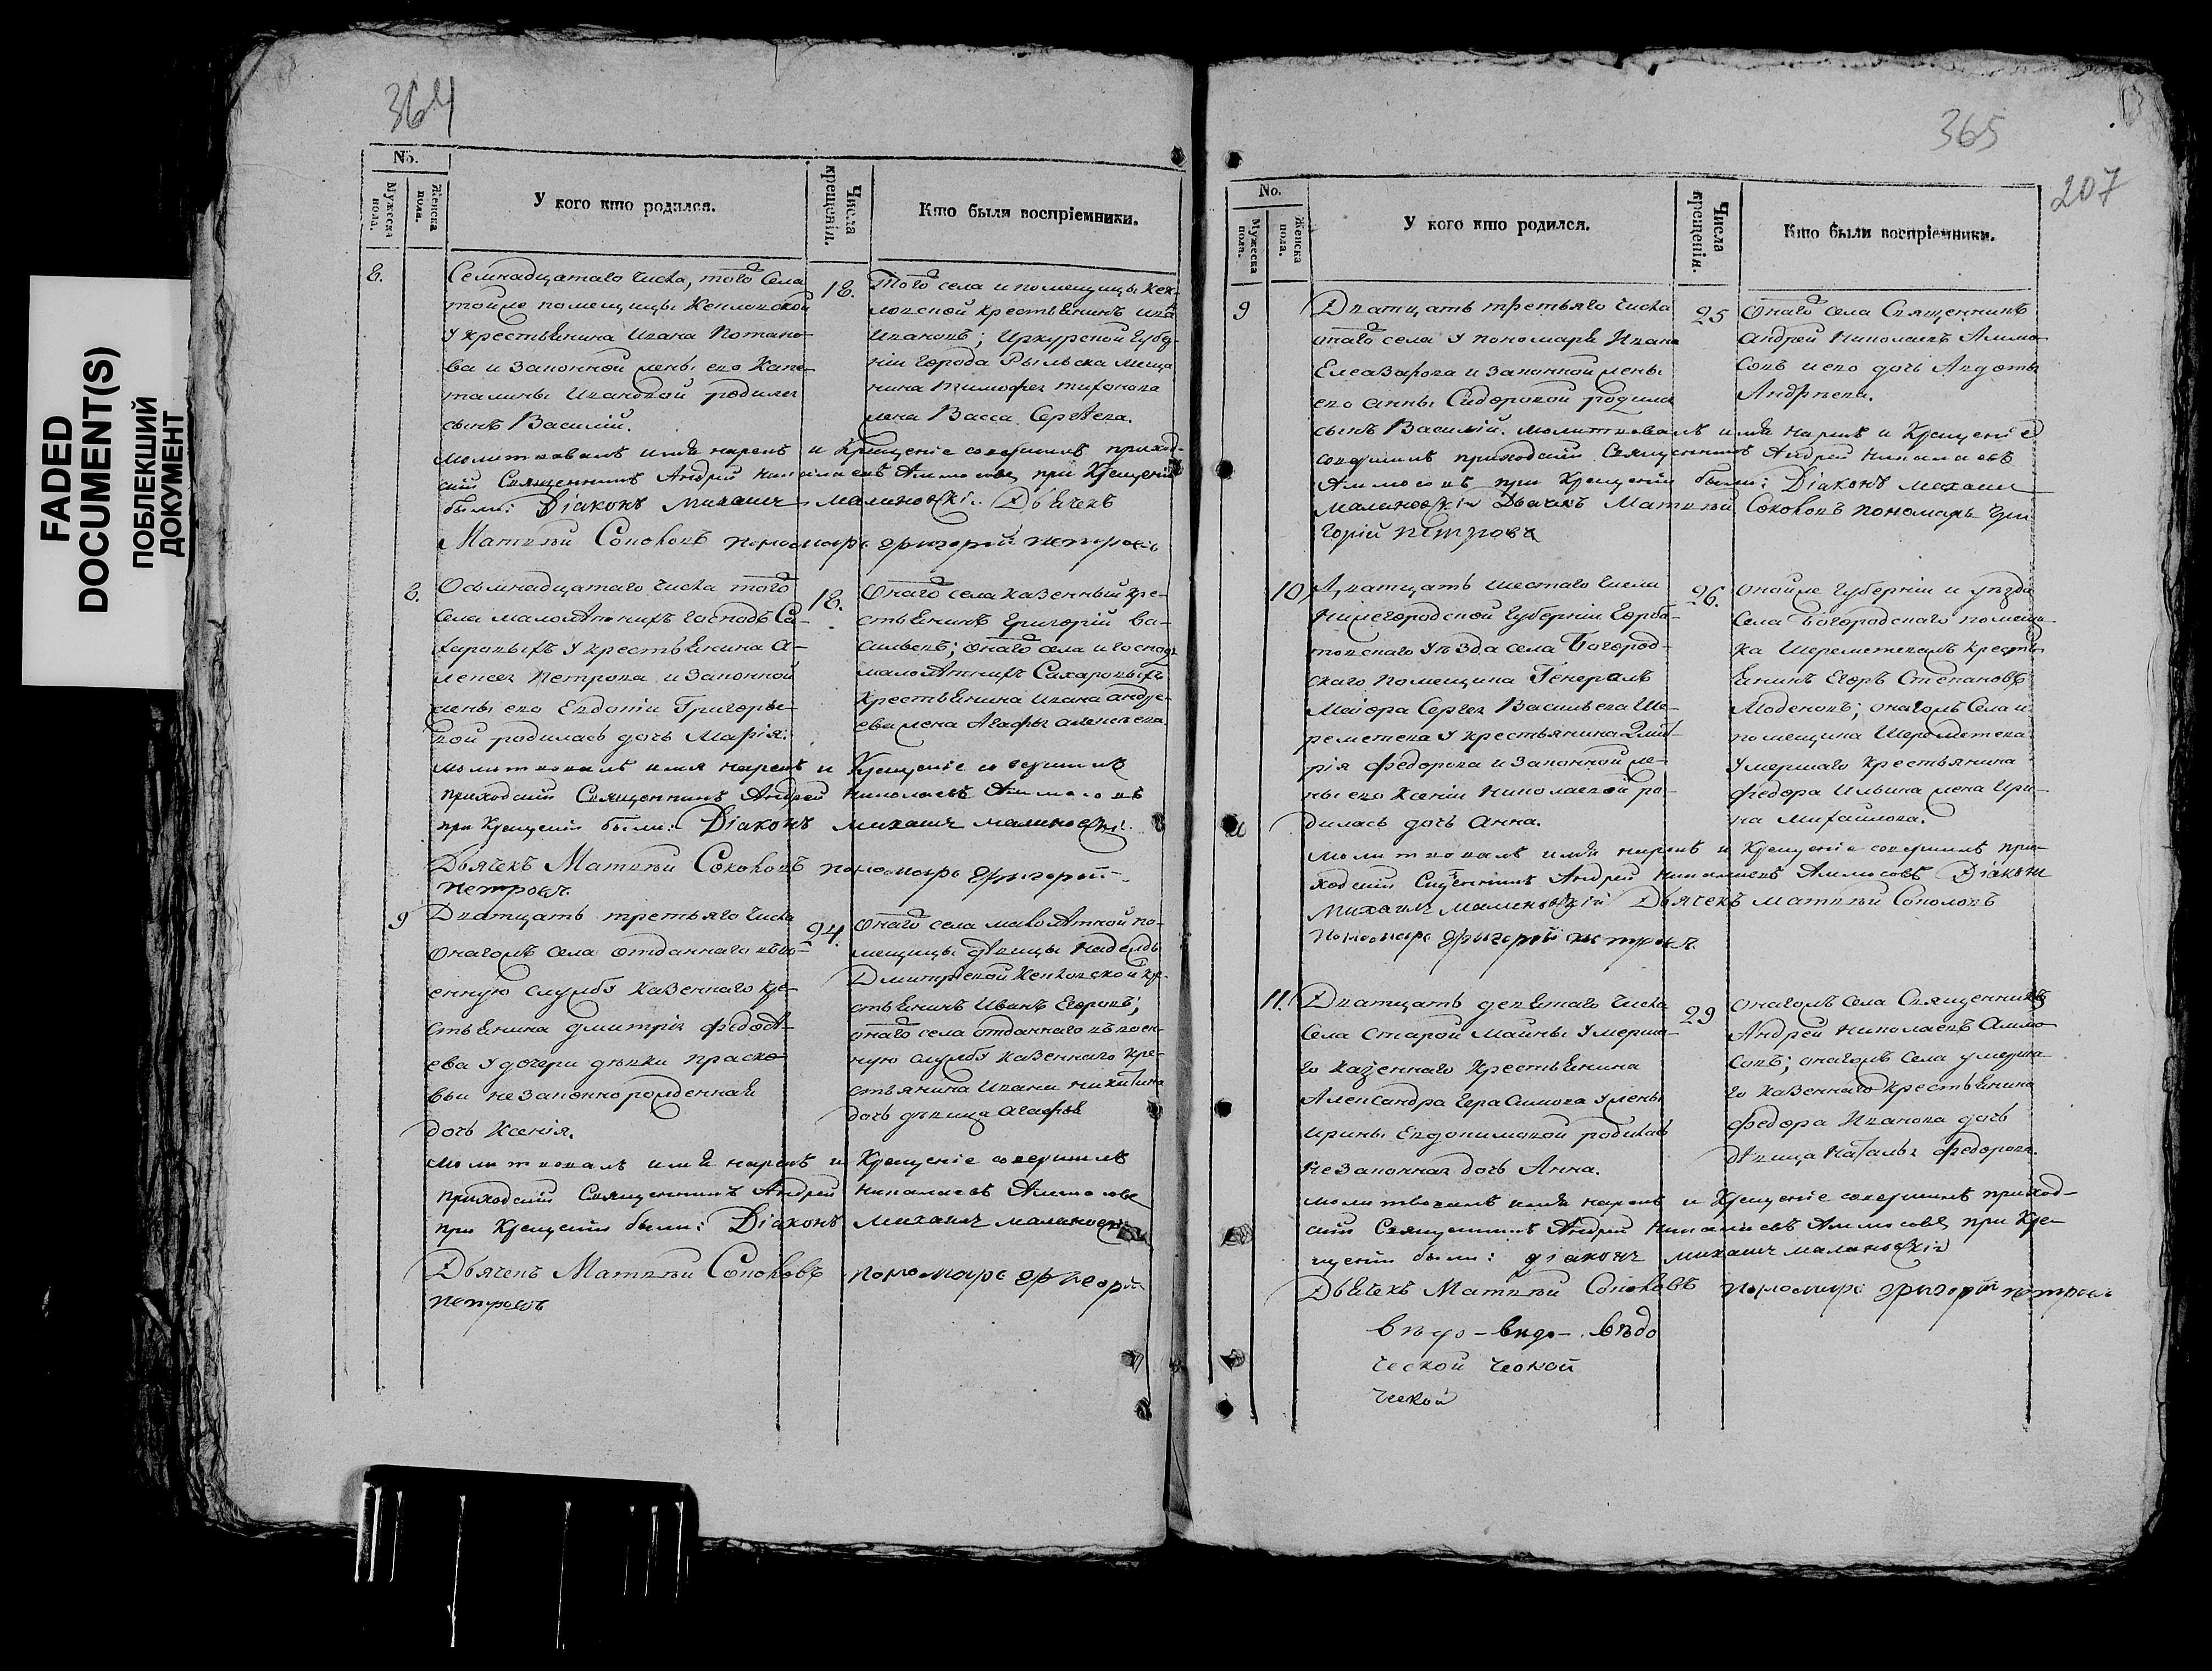 FADED
DOCUMENT(S)
ПОБЛЕКШИЙ
ДОКУМЕНТ
364
No.
Мужеска пола.
Женска пола.
У кого кто родился.
Числа крещенія.
Кто были воспріемники.
8.
Семнадцатаго числа, того села
тойже помещицы
у крестьянина Ивана Потапо-
ва и законной жены его Капе-
талины Ивановой родился
сынъ Василій.
18.
Того села и помещицы
крестьянинъ
Ивановъ; Губер-
ніи города Рыльска меща
нина Тимофея Тихонова
жена Васса Сергѣева.
молитвовалъ имя нарекъ и крещеніе совершилъ приход-
скій Священникъ Андрей Николаевъ Аммосовъ при крещеніи
были: Діаконъ Михаилъ Малиновскій Дьячекъ
Матвѣй Соколовъ пономарь Григорій Петровъ
8.
Осьмнадцатаго числа того
села малолѣтнихъ господъ Са-
харовыхъ у крестьянина А-
лексея Петрова и законной
жены его Евдокіи Григорье-
вой родилась дочь Марія.
18.
Онаго села казенный кре-
стьянинъ Григорій Ва-
сильевъ; онаго села и господъ
малолѣтнихъ Сахаровыхъ
крестьянина Ивана Андре-
ева жена Агафья Алексеева
молитвовалъ имя нарекъ и крещеніе совершилъ
приходскій Священникъ Андрей Николаевъ Аммосовъ
при крещеніи были: Діаконъ Михаилъ Малиновскій.
Дьячекъ Матвѣй Соколовъ пономарь Григорій
Петровъ.
9
Дватцать третьяго числа
онагожъ села отданнаго въ во-
енную службу казеннаго кре-
стьянина Дмитрія Федосѣ-
ева у дочери дѣвки Праско-
вьи незаконнорожденная
дочь Ксенія.
24.
Онаго села малолѣтной по-
мещицы дѣвицы Надежды
Дмитріевой кре-
стьянинъ Иванъ Егоровъ;
онаго села отданнаго въ воен-
ную службу казеннаго кре-
стьянина Ивана Никитина
дочь дѣвица Агафья
молитвовалъ имя нарекъ и крещеніе совершилъ
приходскій Священникъ Андрей Николаевъ Аммосовъ
при крещеніи были: Діаконъ Михаилъ Малиновскій
Дьячекъ Матвѣй Соколовъ пономарь Григорій
Петровъ
365
207
No.
Мужеска пола.
Женска пола.
У кого кто родился.
Числа крещенія.
Кто были воспріемники.
9
Дватцать третьяго числа
онаго села у пономаря Ивана
Елеазарова и законной жены
его Анны Сидоровой родился
сынъ Василій.
25
Онаго села Священникъ
Андрей Николаевъ Аммо-
совъ и его дочь Авдотья
Андрѣева.
молитвовалъ имя нарекъ и крещеніе
совершилъ приходскій Священникъ Андрей Николаевъ
Аммосовъ при крещеніи были: Діаконъ Михаилъ
Малиновскій Дьячекъ Матвѣй Соколовъ пономарь Гри
горій Петровъ
10
Дватцать шестаго числа
Нижегородской Губерніи Горба-
товскаго уѣзда села Богород-
скаго помещика Генералъ
Маіора Сергея Васильева Ше-
реметева у крестьянина Дмит-
рія Федорова и законной же-
ны его Ксеніи Николаевой ро-
дилась дочь Анна.
26.
онойже Губерніи и уѣзда
села Богородскаго помещи-
ка Шереметева крестья
янинъ Егоръ Степановъ
онагожъ села и
помещика Шереметева
умершаго крестьянина
Федора Ильина жена Ири-
на Михаилова.
молитвовалъ имя нарекъ и крещеніе совершилъ при-
ходскій Священникъ Андрей Николаевъ Аммосовъ Діаконъ
Михаилъ Малиновскій Дьячекъ Матвѣй Соколовъ
пономарь Григорій Петровъ.
11.
Дватцать девятаго числа
села Старой Майны умерша-
го казеннаго крестьянина
Александра Герасимова у жены
Ирины Евдокимовой родилась
незаконная дочь Анна.
29
онагожъ села Священникъ
Андрей Николаевъ Аммо-
совъ; онагожъ села умерша-
го казеннаго крестьянина
Федора Иванова дочь
дѣвица Наталья Федорова.
молитвовалъ имя нарекъ и крещеніе совершилъ приход-
скій Священникъ Андрей Николаевъ Аммосовъ при кре-
щеніи были: діаконъ Михаилъ Малиновскій
Дьячекъ Матвѣй Соколовъ пономарь Григорій Петровъ
вѣдо
ческой ческой
ческой